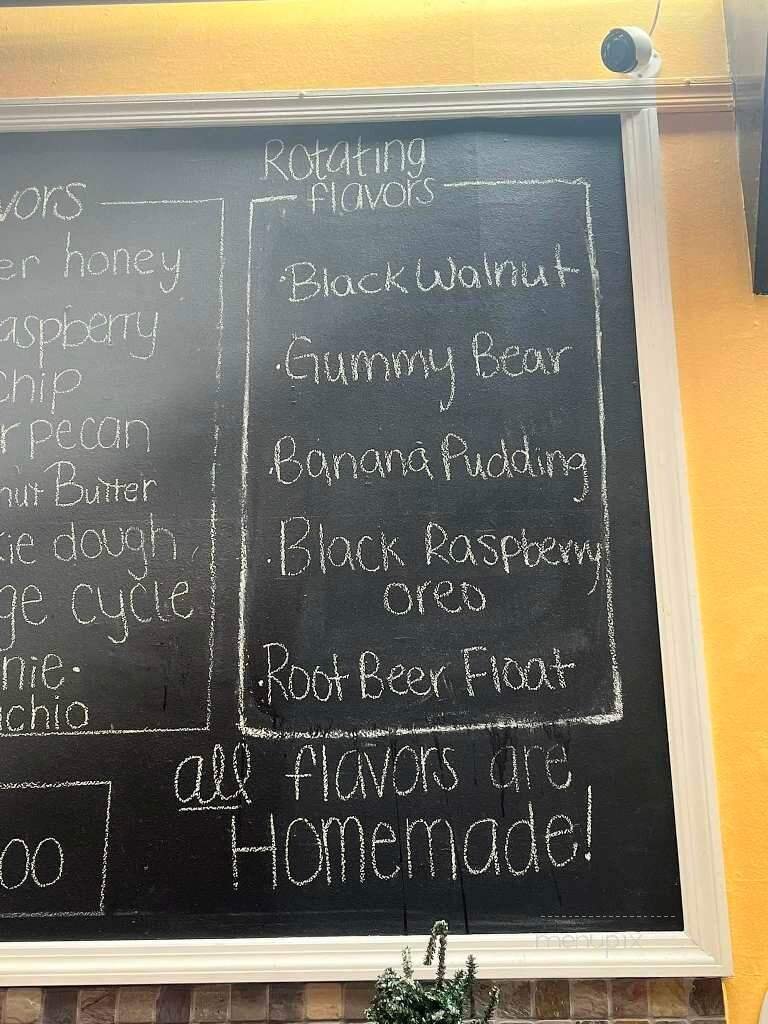 vors
er honey
aspberry
chip
r pecan
nut Butter
ie dough
ge cycle
nie
achio
00
Rotating
flavors
·Black Walnut
·Gummy Bear
·Banana Pudding
·Black Raspberry
oreo
·Root Beer Float
all flavors are
Homemade!
menupix